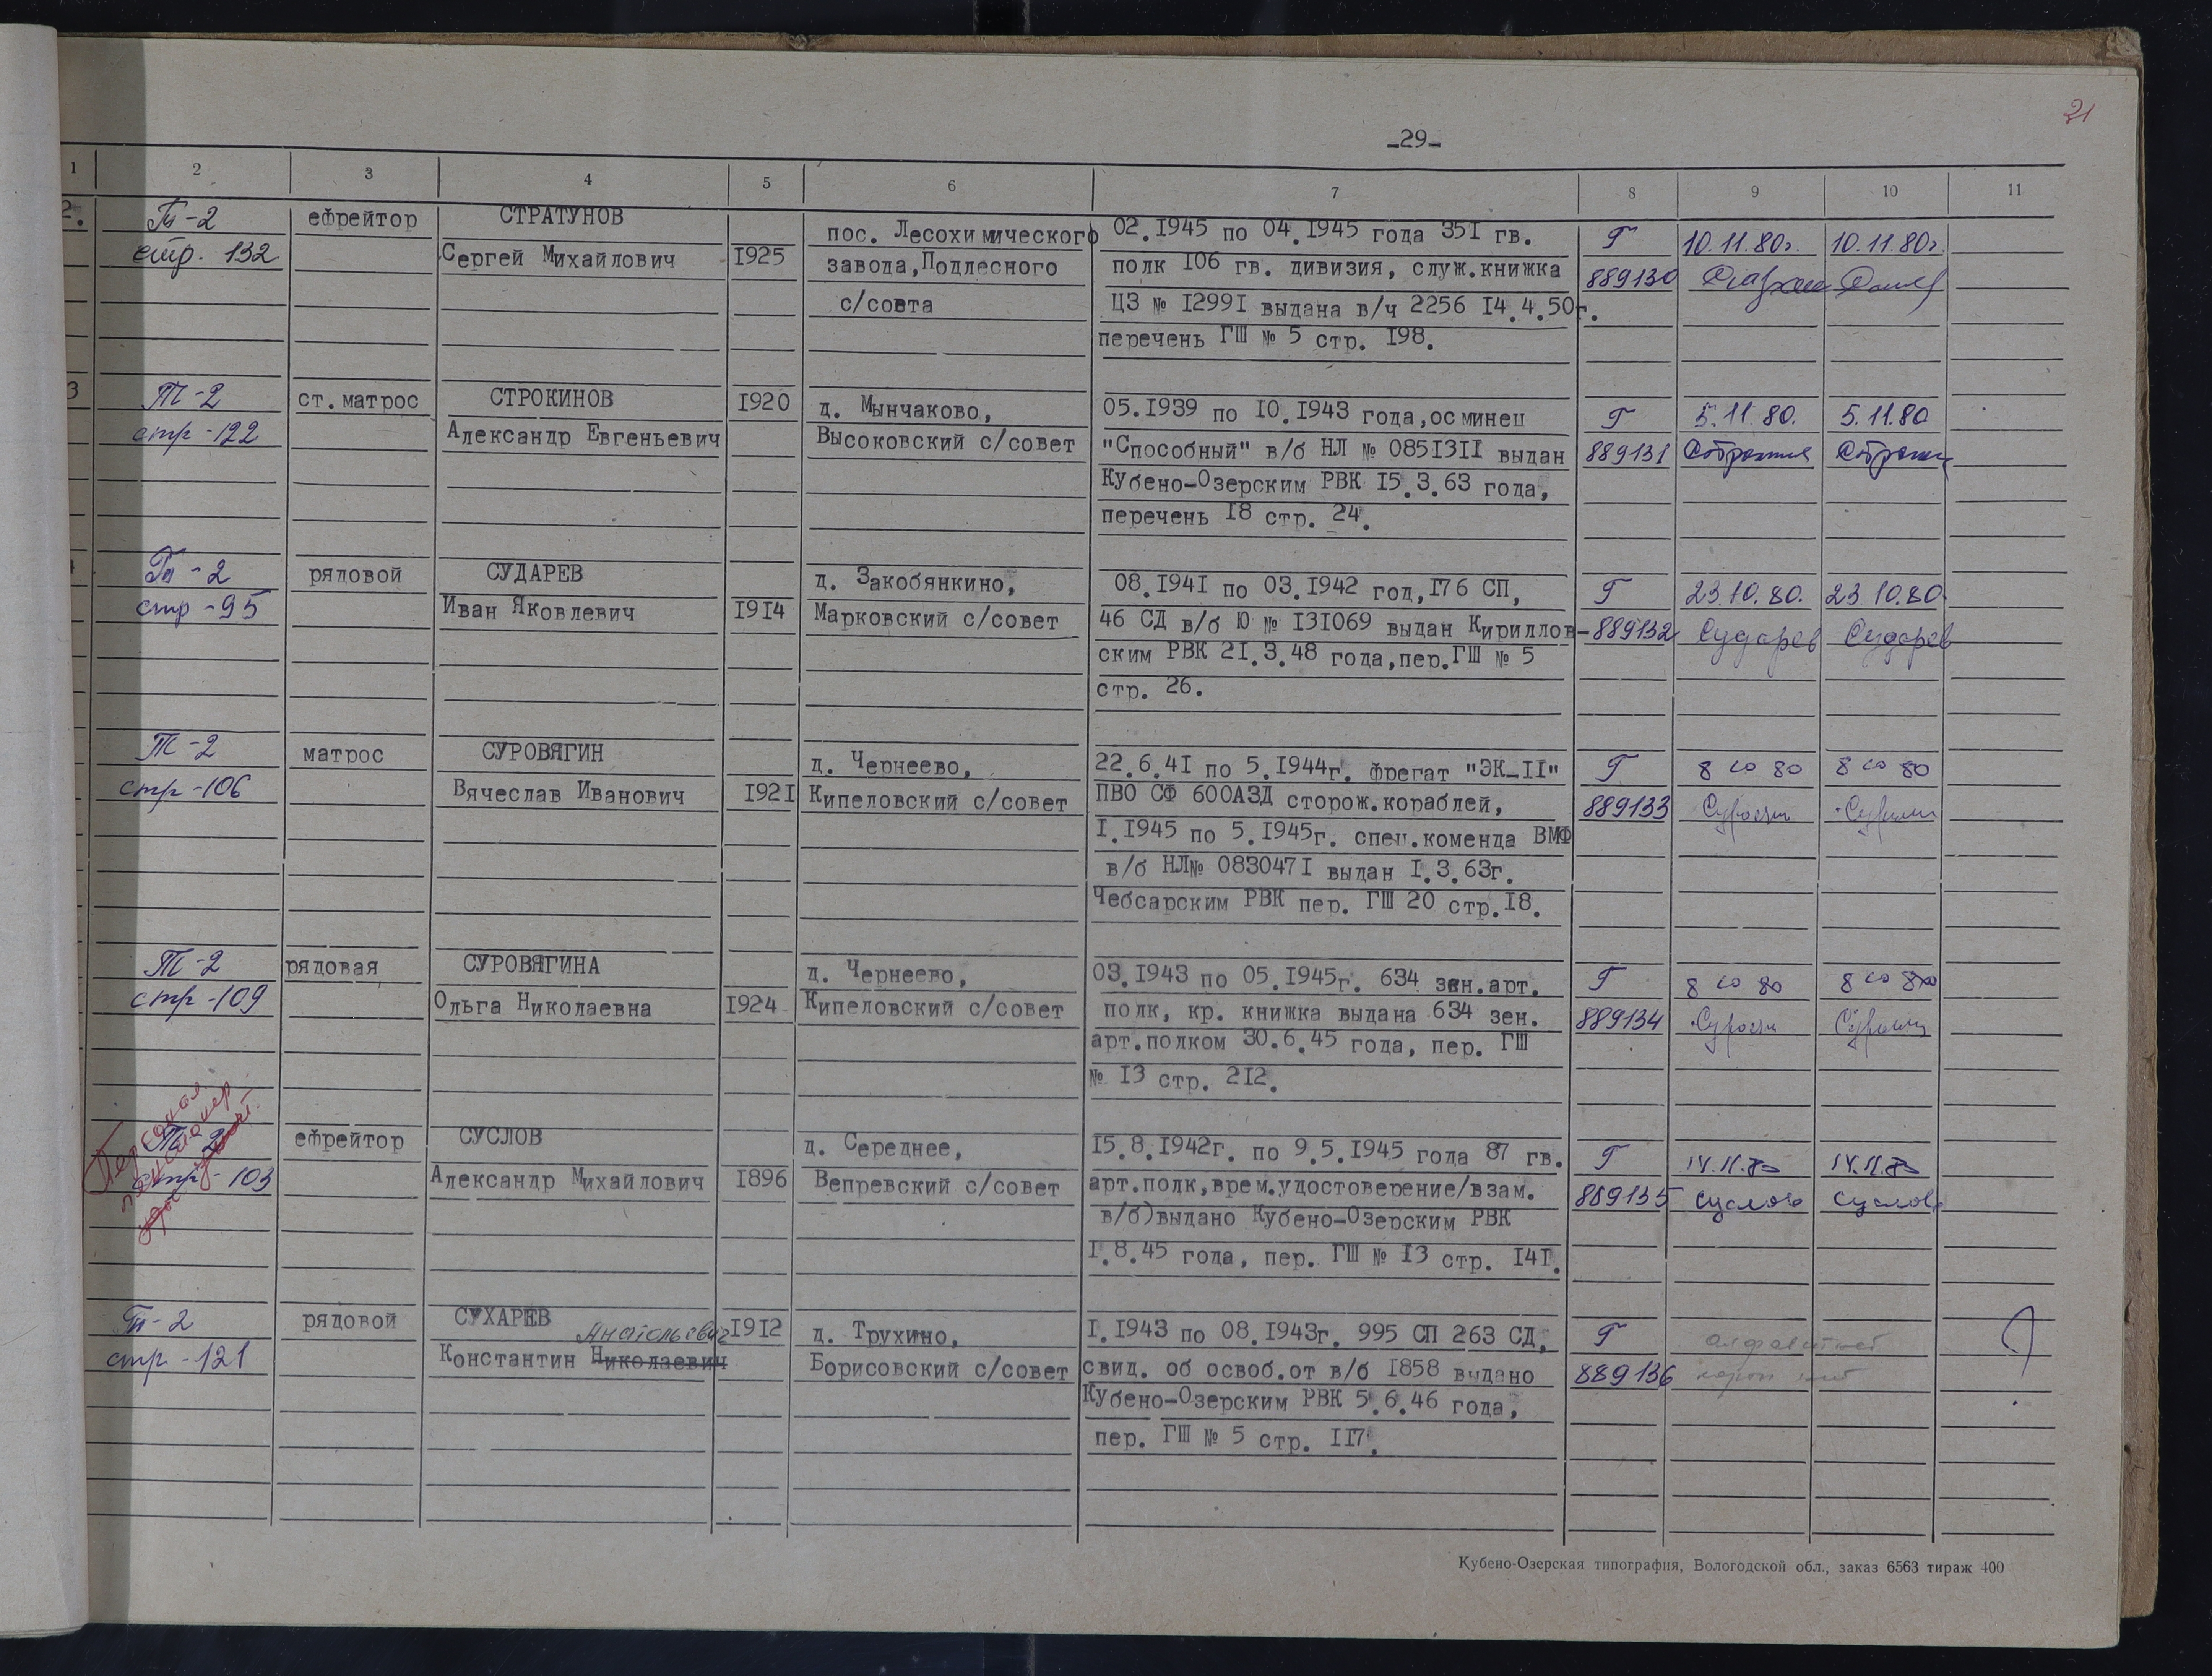 21
-29-
1 2 3 4 5 6 7 8 9 10 11
2. Т-2 ефрейтор СТРАТУНОВ пос. Лесохимического 02.1945 по 04.1945 года 351 гв. Г 10.11.80г. 10.11.80г.
стр. 132 Сергей Михайлович 1925 завода,Подлесного полк 106 гв. дивизия, служ.книжка 889130
с/совта ЦЗ № 12991 выдана в/ч 2256 14.4.50г.
перечень ГШ № 5 стр. 198.
3 Т-2 ст.матрос СТРОКИНОВ 1920 д. Мынчаково, 05.1939 по 10.1943 года,осминец Г 5.11.80. 5.11.80
стр-122 Александр Евгеньевич Высоковский с/совет "Способный" в/б НЛ № 0851311 выдан 889131
Кубено-Озерским РВК 15.3.63 года,
перечень 18 стр. 24.
Т-2 рядовой СУДАРЕВ д. Закобянкино, 08.1941 по 03.1942 год,176 СП, Г 23.10.80. 23.10.80.
стр-95 Иван Яковлевич 1914 Марковский с/совет 46 СД в/б Ю № 131069 выдан Кириллов- 889132 Сударев Сударев
ским РВК 21.3.48 года,пер.ГШ № 5
стр. 26.
Т-2 матрос СУРОВЯГИН д. Чернеево, 22.6.41 по 5.1944г. фрегат "ЭК-11" Г 8 10 80 8 10 80
стр-106 Вячеслав Иванович 1921 Кипеловский с/совет ПВО СФ 600АЗД сторож.кораблей, 889133
1.1945 по 5.1945г. спец.коменда ВМФ
в/б НЛ№ 0830471 выдан 1.3.63г.
Чебсарским РВК пер. ГШ 20 стр.18.
Т-2 рядовая СУРОВЯГИНА д. Чернеево, 03.1943 по 05.1945г. 634 зен.арт. Г 8 10 80 8 10 80
стр-109 Ольга Николаевна 1924 Кипеловский с/совет полк, кр. книжка выдана 634 зен. 889134
арт.полком 30.6.45 года, пер. ГШ
№ 13 стр. 212.
Т-2 ефрейтор СУСЛОВ д. Середнее, 15.8.1942г. по 9.5.1945 года 87 гв. Г 14.11.80 14.11.80
стр-103 Александр Михайлович 1896 Вепревский с/совет арт.полк,врем.удостоверение/взам. 889135 Суслов Суслов
в/б)выдано Кубено-Озерским РВК
1.8.45 года, пер. ГШ № 13 стр. 141.
Т-2 рядовой СУХАРЕВ Анатольевич 1912 д. Трухино, 1.1943 по 08.1943г. 995 СП 263 СД, Г
стр-121 Константин Николаевич Борисовский с/совет свид. об освоб.от в/б 1858 выдано 889136
Кубено-Озерским РВК 5.6.46 года,
пер. ГШ № 5 стр. 117.
Кубено-Озерская типография, Вологодской обл., заказ 6563 тираж 400